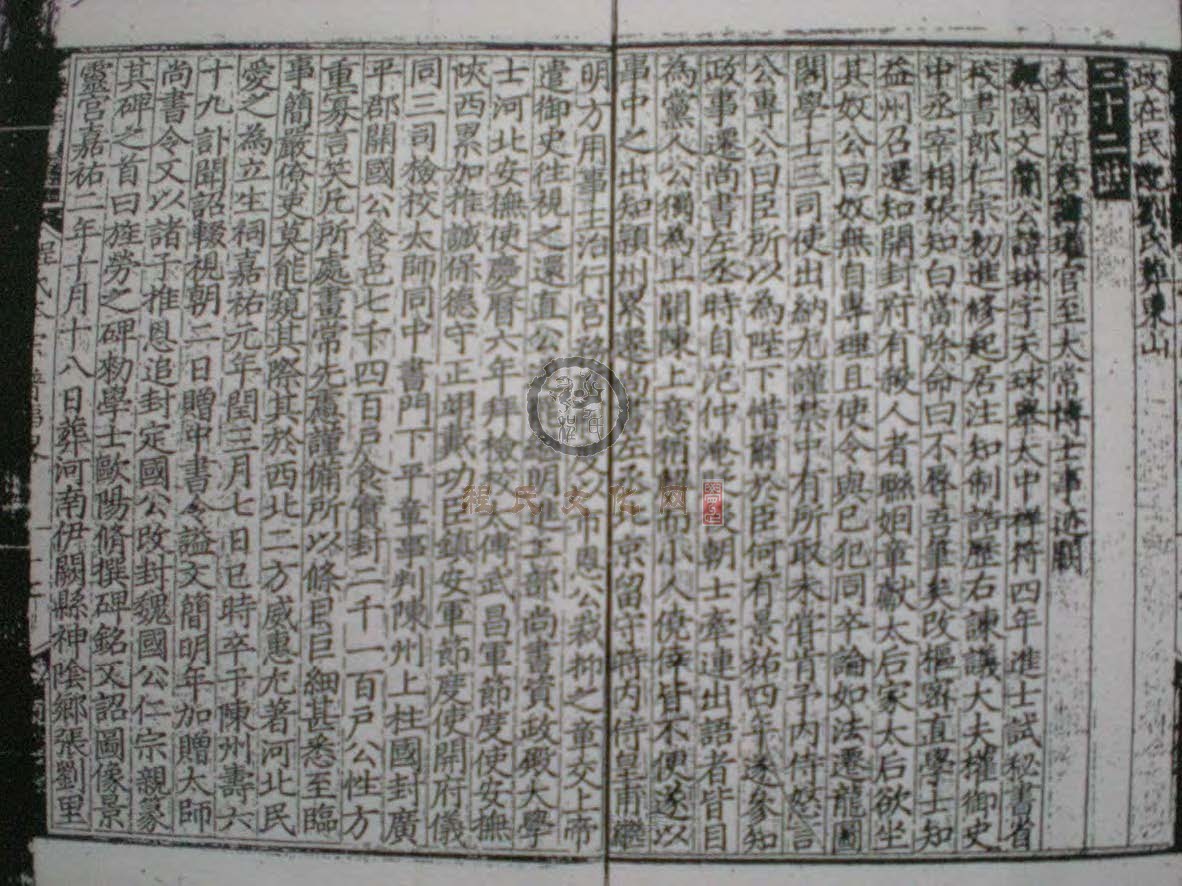 政在民 娶劉氏葬東山
三十二世
太常府君諱 官至太常博士事迹闕
魏國文簡公諱琳字天 大中祥符四年進士試秘書省
校書郎仁宗初進修起居注知制誥歷右諫議大夫權御史
中丞宰相張知白當除命曰不辱吾筆矣改樞密直學士知
益州召還知開封府有殺人者聯姻章獻太后家太后欲坐
其奴公曰奴無自專理且使令與已犯同卒論如法遷龍圖
閣學士三司使出納尤謹禁中有所取未嘗肯予内侍怒言
公專公曰臣所以為陛下惜爾於臣何有景祐四年遂參知
政事遷尚書左丞時自范仲淹 朝士牽連出語者皆目
為黨人公獨為上開陳上意 而小人僥倖皆不便遂以
事中之出知潁州累遷尚書左丞北京留守時内侍皇甫繼
明方用事主治行宫 市恩公裁抑之章交上帝
遣御史往視之還直公 繼明進工部尚書資政殿大學
士河北安撫使慶曆六年拜檢校太傅武昌軍節度使安撫
陝西累加推誠保德守正翊戴功臣鎮安軍節度使開府儀
同三司檢校太師同中書門下平章事判陳州上柱國封廣
平郡開國公食邑七千四百户食實封二千一百户公性方
重寡言笑凡所處畫常先慮謹備所以條目巨細甚悉至臨
事簡嚴僚吏莫能窺其際其於西北二方威惠尤著河北民
愛之為立生祠嘉祐元年閏三月七日巳時卒于陳州壽六
十九訃聞詔輟視朝二日贈中書令謚文簡明年加贈太師
尚書令又以諸子推恩追封定國公改封魏國公仁宗親篆
其碑之首曰旌勞之碑勑學士歐陽脩撰碑銘又詔圖像景
靈宫嘉祐二年十月十八日葬河南伊闕縣神陰鄉張劉里
程氏文化网